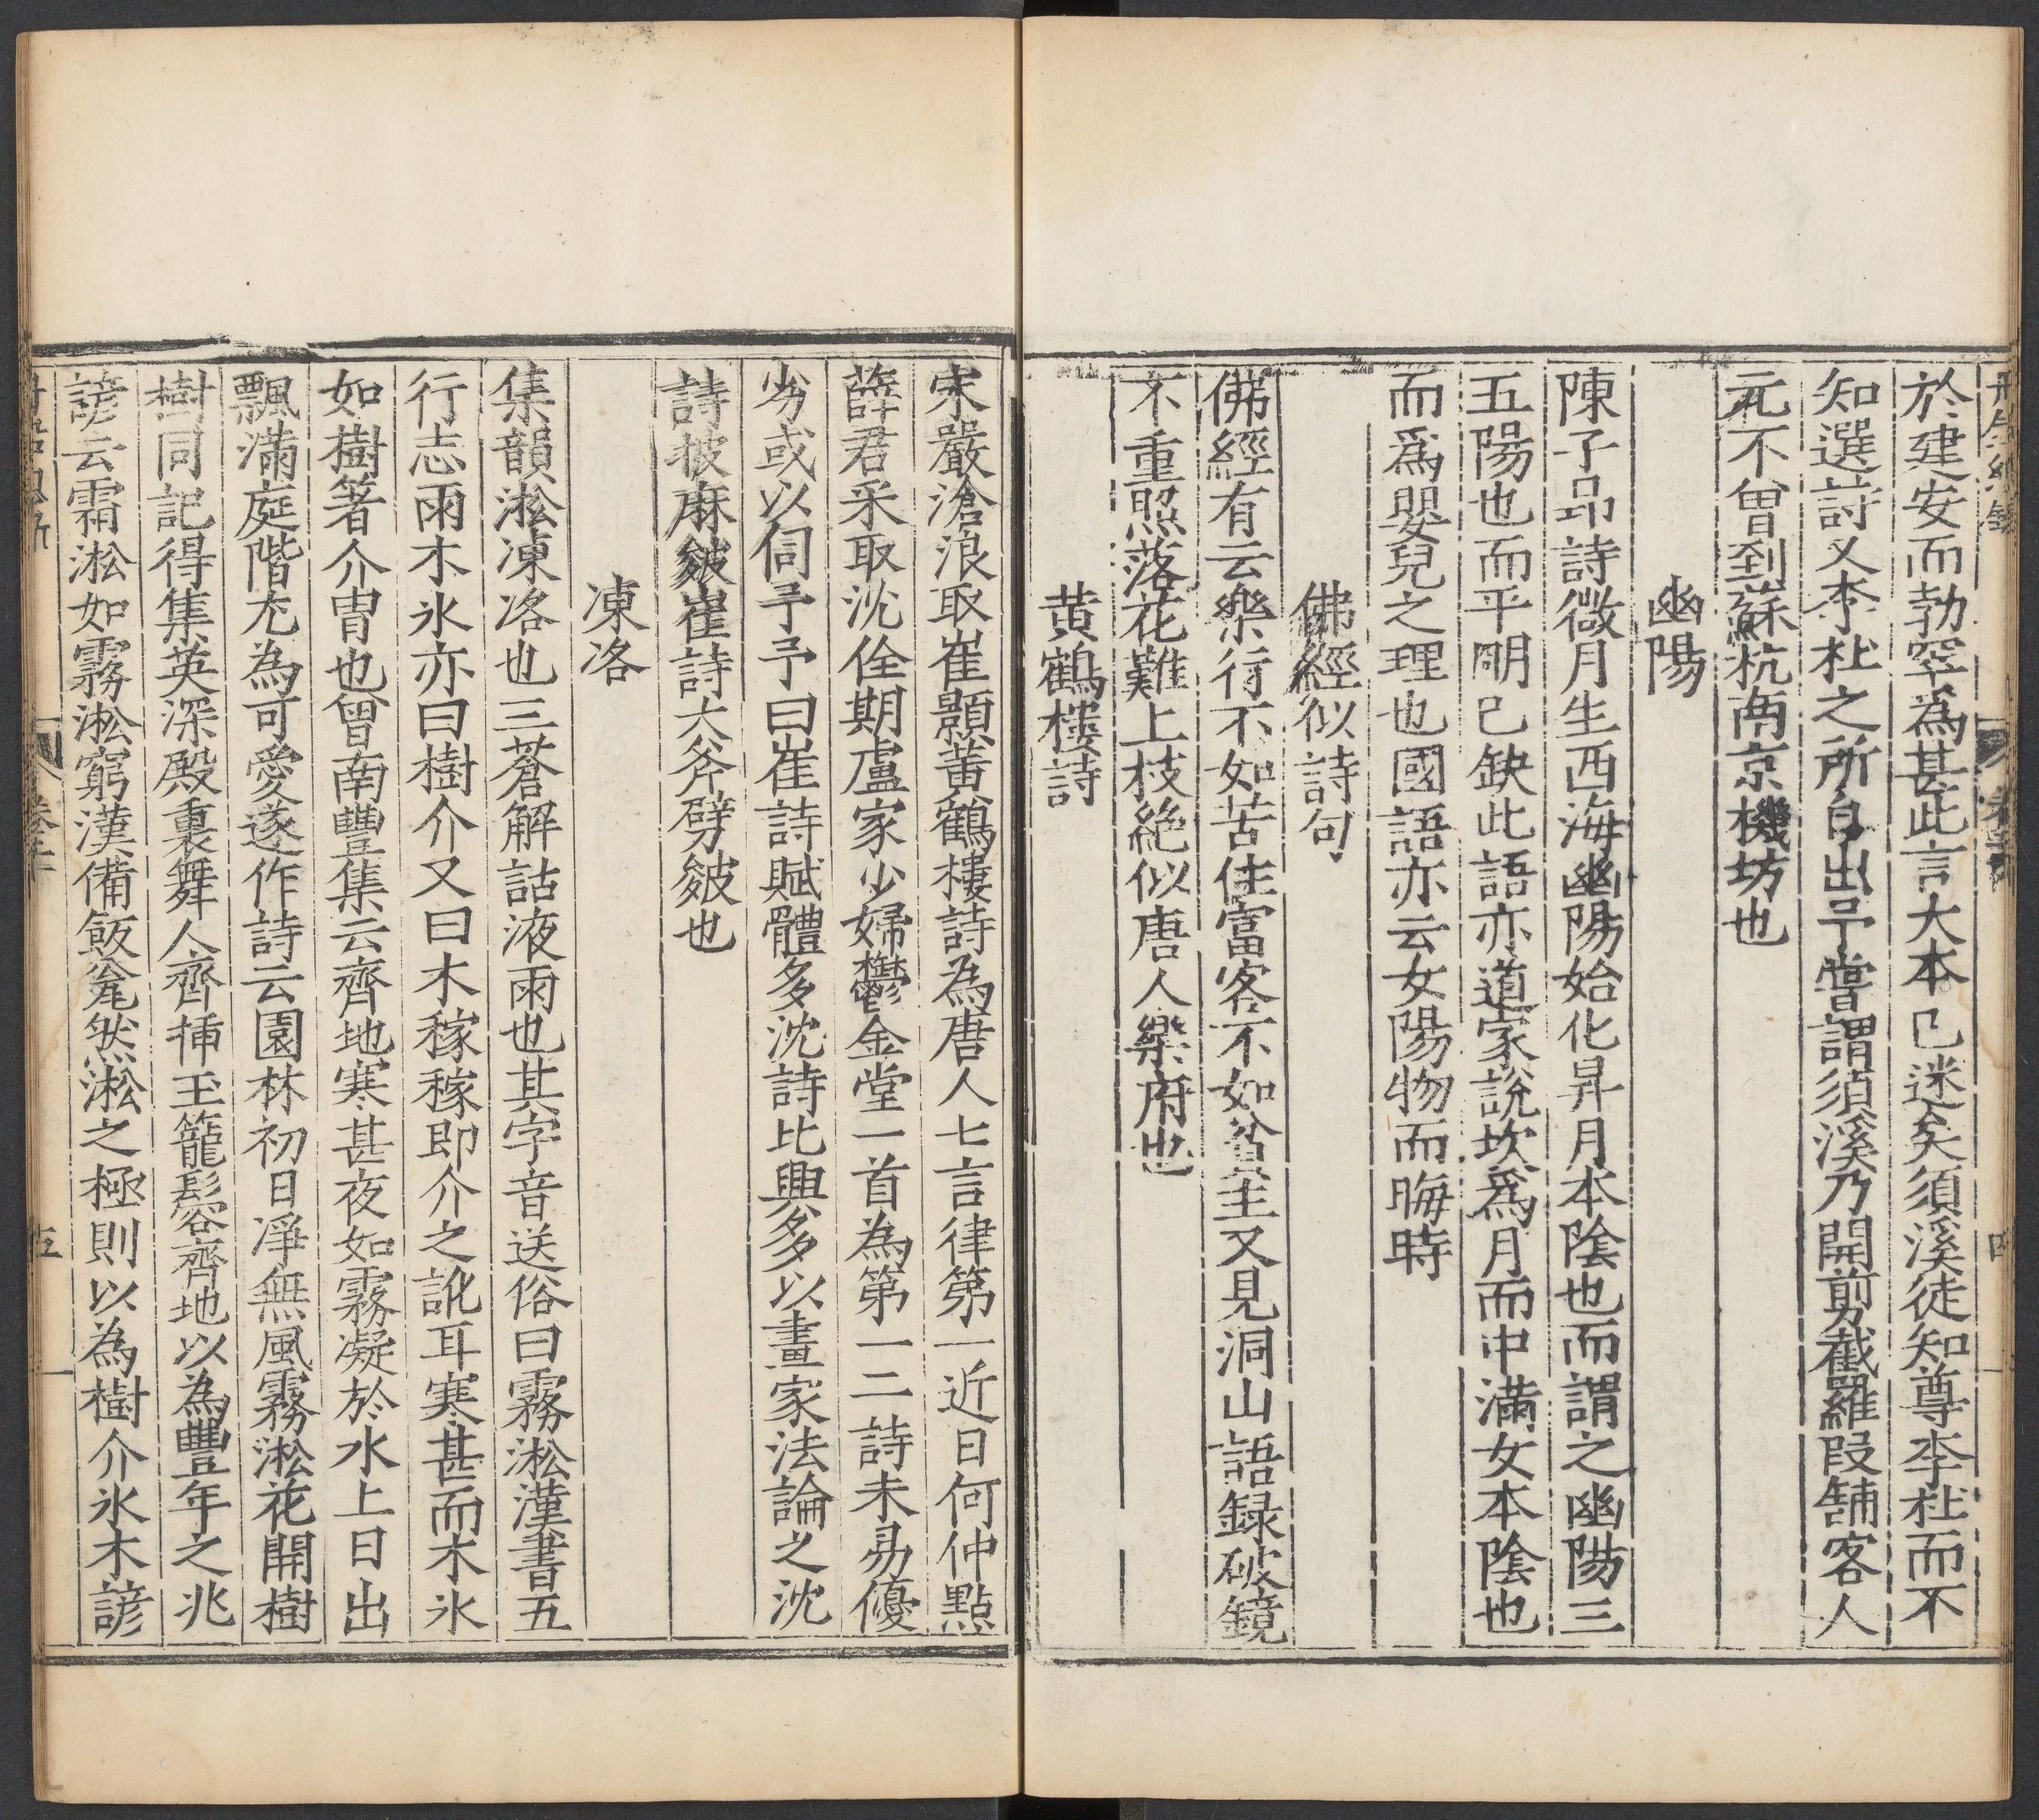 於建安而勃窣爲甚此言大本已迷矣須溪徒知尊李杜而不
知選詩又李杜之所自出予嘗謂須溪乃開剪截羅段舖客人
元不曾到蘇杭南京機坊也
幽陽
陳子昂詩微月生西海幽陽始化昇月本陰也而謂之幽陽三
五陽也而平明已缺此語亦道家說坎爲月而中滿女本陰也
而爲嬰兒之理也國語亦云女陽物而晦時
佛經似詩句
佛經有云樂行不如苦住富客不如貧主又見洞山語録破鏡
不重照落花難上枝絶似唐人樂府也
黄鶴樓詩
宋嚴滄浪取崔顥黄鶴樓詩為唐人七言律第一近日何仲黙
薛君采取沈佺期盧家少婦鬱金堂一首為第一二詩未易優
劣或以伺予予曰崔詩賦體多沈詩比興多以畫家法論之沈
詩披麻皴崔詩大斧劈皴也
凍洛
集韻淞凍洛也三蒼解詁液雨也其字音送俗曰霧淞漢書五
行志雨木氷亦曰樹介又曰木稼稼即介之訛耳寒甚而木氷
如樹箸介冑也曾南豐集云齊地寒甚夜如霧凝於水上日出
飄滿庭階尤為可愛遂作詩云園林初日凈無風霧淞花開樹
樹同記得集英深殿裏舞人齊揷玉籠鬆齊地以為豐年之兆
諺云霜淞如霧淞窮漢備飯瓮然淞之極則以為樹介氷木諺